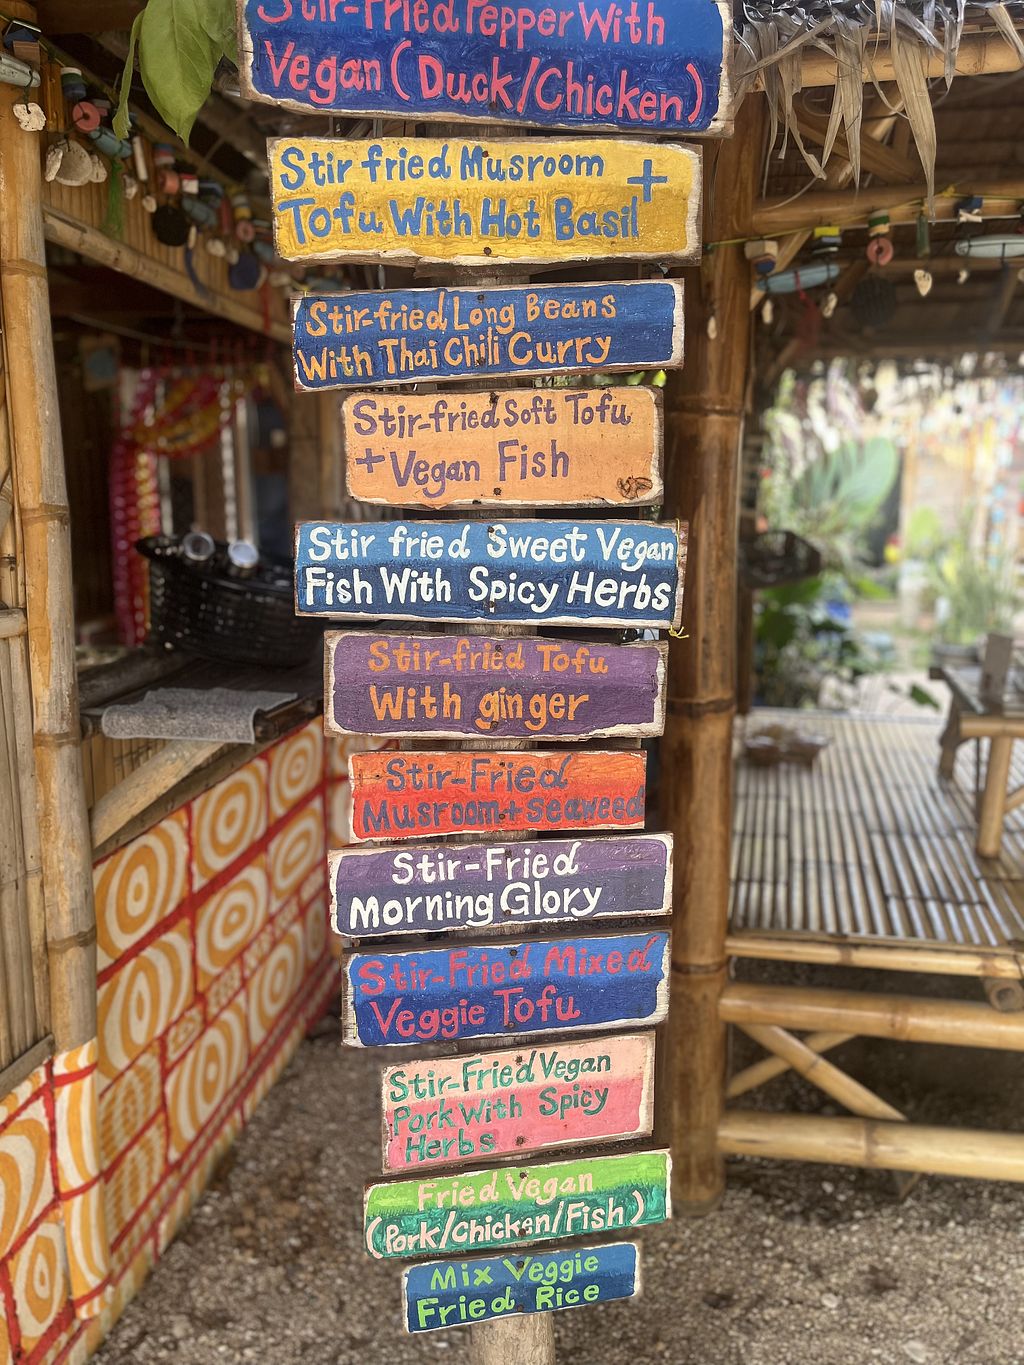 Stir-Fried Pepper With
Vegan (Duck/Chicken)
Stir fried Musroom +
Tofu With Hot Basil
Stir-fried Long Beans
With Thai Chili Curry
Stir-fried Soft Tofu
+ Vegan Fish
Stir fried Sweet Vegan
Fish With Spicy Herbs
Stir-fried Tofu
With ginger
Stir-Fried
Musroom + seaweed
Stir-Fried
Morning Glory
Stir-Fried Mixed
Veggie Tofu
Stir-Fried Vegan
Pork With Spicy
Herbs
Fried Vegan
(Pork/Chicken/Fish)
Mix Veggie
Fried Rice